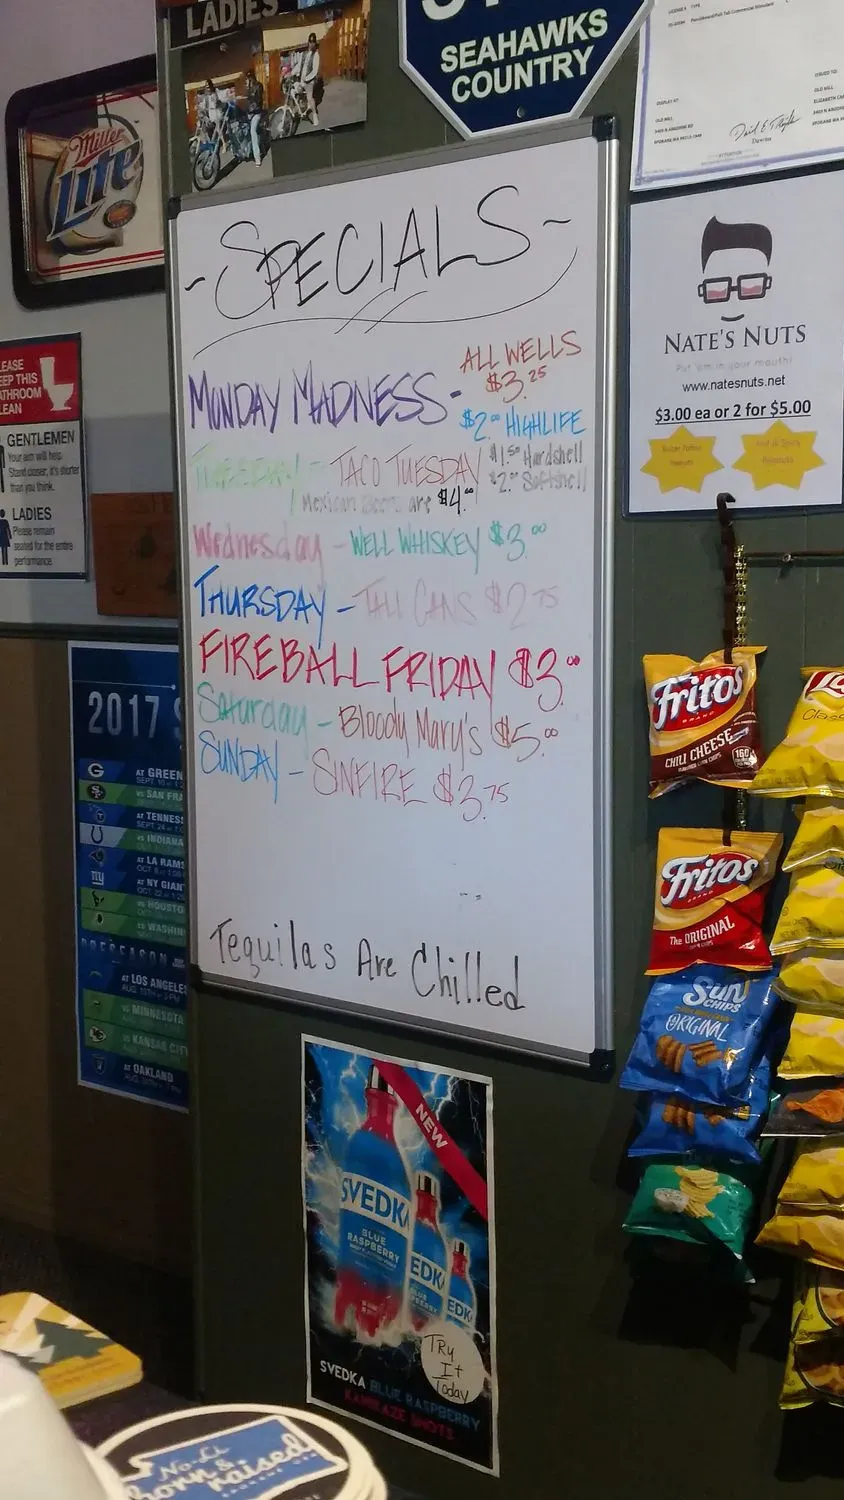 LADIES
SEAHAWKS
COUNTRY
Miller
Lite
OLD MILL
SPECIALS
MONDAY MADNESS - ALL WELLS
$3.25
$2.00 HIGHLIFE
TACO TUESDAY $1.50 Hardshell
$2.00 Softshell
Mexican Beers are $4.00
Wednesday - WELL WHISKEY $3.00
THURSDAY - TALL CANS $2.75
FIREBALL FRIDAY $3.00
Saturday - Bloody Mary's $5.00
SUNDAY - SINFIRE $3.75
Tequilas Are Chilled
NATE'S NUTS
Put 'em in your mouth!
www.natesnuts.net
$3.00 ea or 2 for $5.00
EASE
EEP THIS
ATHROOM
LEAN
GENTLEMEN
Your aim will help.
Stand closer, it's shorter
than you think.
LADIES
Please remain
seated for the entire
performance.
2017
AT GREEN
VS SAN FRA
AT TENNES
VS INDIANA
AT LA RAMS
AT NY GIAN
VS HOUSTO
VS WASHIN
PRESEASON
AT LOS ANGELES
VS MINNESOTA
VS KANSAS CITY
AT OAKLAND
Fritos
BRAND
CHILI CHEESE
160
Fritos
BRAND
The ORIGINAL
Sun
CHIPS
ORIGINAL
NEW
SVEDKA
BLUE
RASPBERRY
EDK
EDK
TRY
It
Today
SVEDKA BLUE RASPBERRY
KAMIKAZE SHOTS
No-Li
born &
raised